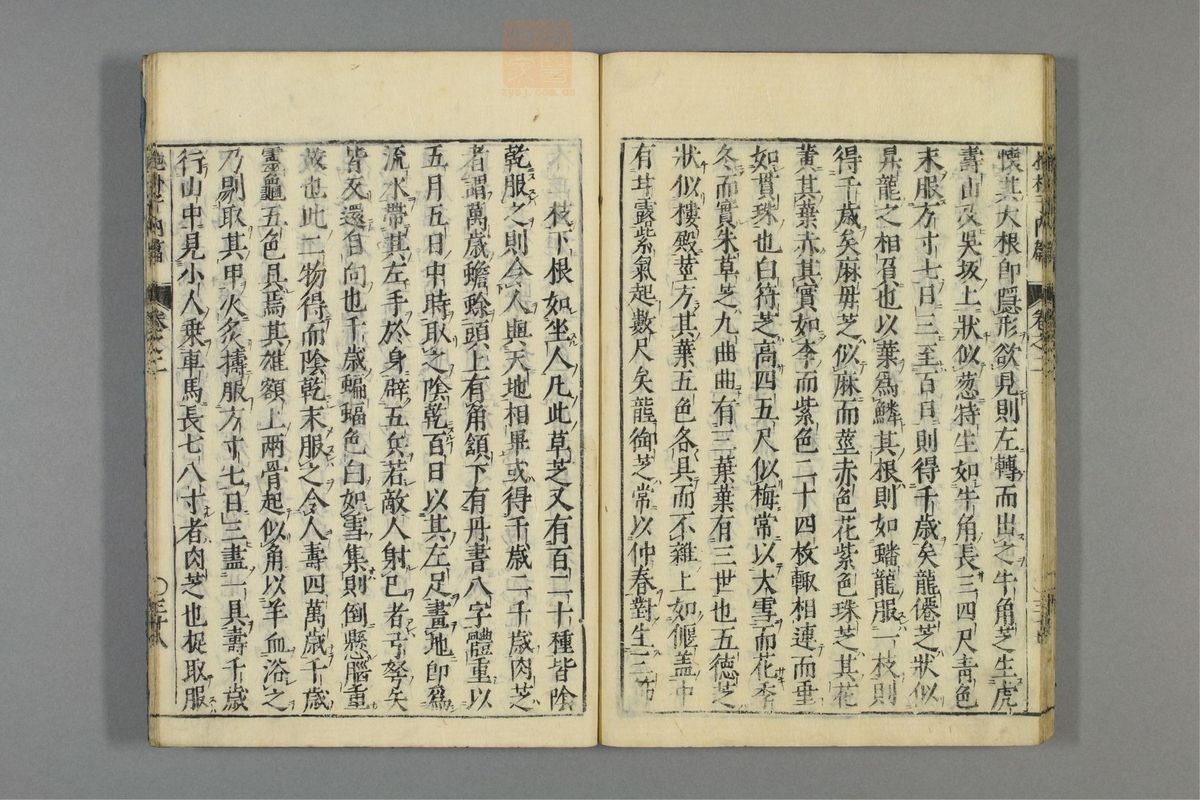 懷其大根即隱形欲見則左轉而出之牛角芝生虎
壽山及吳坂上狀似葱特生如牛角長三四尺青色
末服方寸匕日三至百日則得千歲矣龍僊芝狀似
昇龍之相負也以葉爲鱗其根則如蟠龍服一枝則
得千歲矣麻母芝似麻而莖赤色花紫色珠芝其花
黄其葉赤其實如李而紫色二十四枚輙相連而垂
如貫珠也白符芝高四五尺似梅常以大雪而花季
冬而實朱草芝九曲曲有三葉葉有三世也五徳芝
狀似樓殿莖方其葉五色各具而不雜上如偃盖中
有甘露紫氣起數尺矣龍御芝常以仲春對生三節
十二枝下根如坐人凡此草芝又有百二十種皆陰
乾服之則令人與天地相畢或得千歲二千歲肉芝
者謂萬歲蟾蜍頭上有角頷下有丹書八字體重以
五月五日中時取之陰乾百日以其左足畫地即爲
流水帶其左手於身辟五兵若敵人射已者弓弩矢
皆反還自向也千歲蝙蝠色白如雪集則倒懸腦重
故也此二物得而陰乾末服之令人壽四萬歲千歲
靈龜五色具焉其雄額上兩骨起似角以羊血浴之
乃剔取其甲火炙擣服方寸匕日三盡一具壽千歲
行山中見小人乗車馬長七八寸者肉芝也捉取服
内篇 卷之二